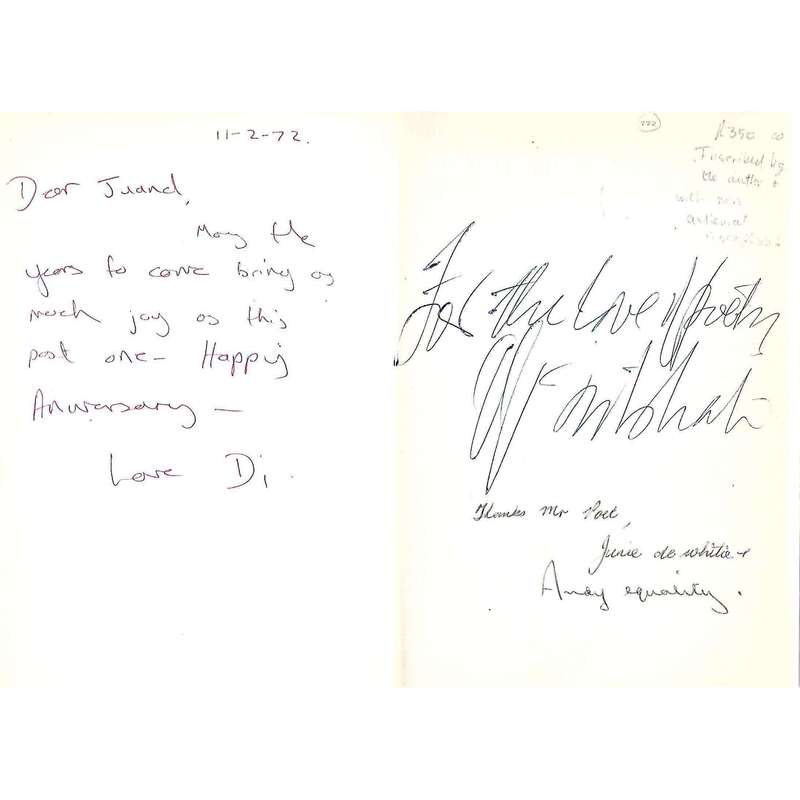 11-2-72.
Dear Juand,
May the
years to come bring as
much joy as this
past one- Happy
Aniversary -
Love Di.
222
R350 00
Inscribed by
the author +
with
For the love of poetry
Thanks Mr Poet,
Junie de whitie +
Andy equality.